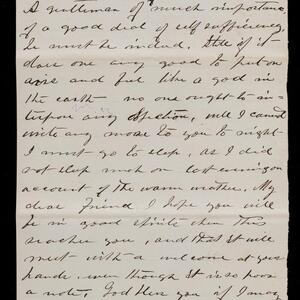 A gentleman of much importance,
of a good deal of self sufficiency,
he must be indeed. Still if it
does one any good to put on
airs and feel like a god in
the earth no one ought to in-
terpose any objection, well I cannot
write any more to you to night
I must go to sleep, as I did
not sleep much on last evening on
account of the warm weather. My
dear friend I hope you will
be in good spirits when this
reaches you, and that it will
meet with a welcome at your
hands, even though it is so poor
a note, God bless you if I may